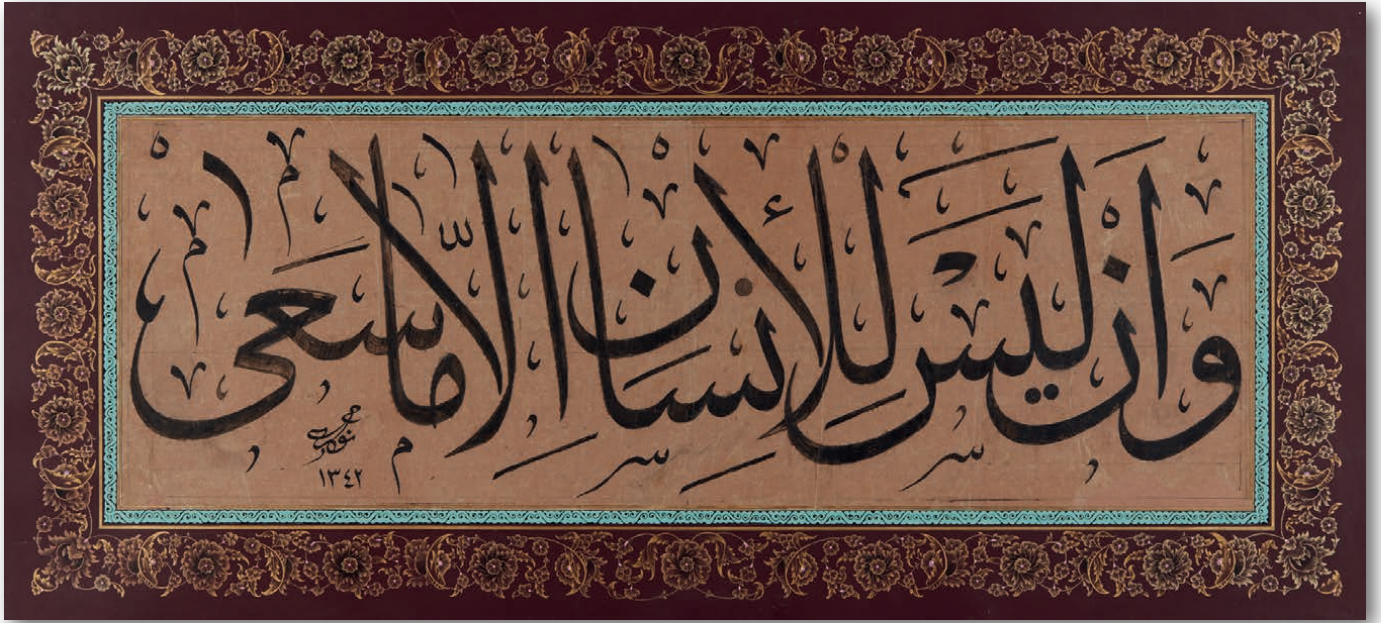 وَأَنْ لَيْسَ لِلْإِنْسَانِ إِلَّا مَا سَعَى
نوری
١٣٤٢